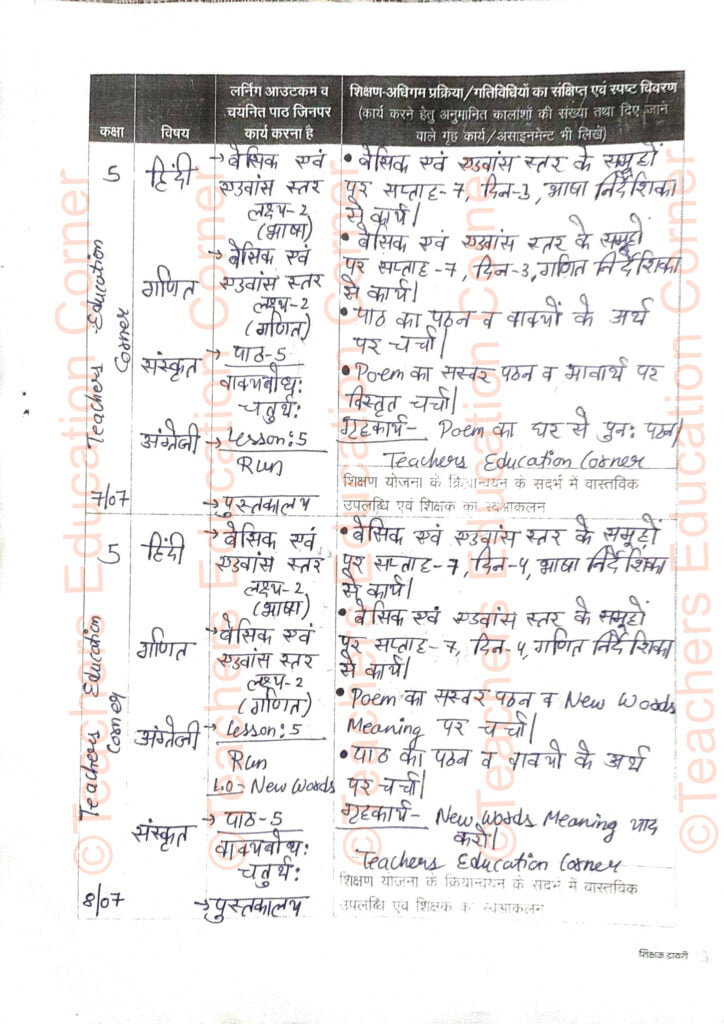 कक्षा
विषय
लर्निंग आउटकम व
चयनित पाठ जिनपर
कार्य करना है
शिक्षण-अधिगम प्रक्रिया/गतिविधियों का संक्षिप्त एवं स्पष्ट विवरण
(कार्य करने हेतु अनुमानित कालांशों की संख्या तथा दिए जाने
वाले गृह कार्य/असाइनमेंट भी लिखें)
5
हिंदी
→ बेसिक एवं
एडवांस स्तर
लक्ष्य-2
(भाषा)
• बेसिक एवं एडवांस स्तर के समूहों
पर सप्ताह-7, दिन-3, भाषा निर्देशिका
से कार्य।
गणित
→ बेसिक एवं
एडवांस स्तर
लक्ष्य-2
(गणित)
• बेसिक एवं एडवांस स्तर के समूहों
पर सप्ताह-7, दिन-3, गणित निर्देशिका
से कार्य।
संस्कृत
→ पाठ-5
वाक्यबोधः
चतुर्थः
• पाठ का पठन व वाक्यों के अर्थ
पर चर्चा।
अंग्रेजी
→ Lesson:5
Run
• Poem का सस्वर पठन व भावार्थ पर
विस्तृत चर्चा।
गृहकार्य- Poem का घर से पुनः पठन।
Teachers Education Corner
Teachers Education
Corner
7/07
→ पुस्तकालय
शिक्षण योजना के क्रियान्वयन के सदर्भ में वास्तविक
उपलब्धि एवं शिक्षक का स्वआकलन
5
हिंदी
→ बेसिक एवं
एडवांस स्तर
लक्ष्य-2
(भाषा)
• बेसिक एवं एडवांस स्तर के समूहों
पर सप्ताह-7, दिन-4, भाषा निर्देशिका
से कार्य।
गणित
→ बेसिक एवं
एडवांस स्तर
लक्ष्य-2
(गणित)
• बेसिक एवं एडवांस स्तर के समूहों
पर सप्ताह-7, दिन-4, गणित निर्देशिका
से कार्य।
अंग्रेजी
→ Lesson:5
Run
L.O- New Words
• Poem का सस्वर पठन व New Words
Meaning पर चर्चा।
संस्कृत
→ पाठ-5
वाक्यबोधः
चतुर्थः
• पाठ का पठन व वाक्यों के अर्थ
पर चर्चा।
गृहकार्य- New Words Meaning याद
करो।
Teachers Education Corner
Teachers Education
Corner
8/07
→ पुस्तकालय
शिक्षण योजना के क्रियान्वयन के सदर्भ में वास्तविक
उपलब्धि एवं शिक्षक का स्वआकलन
शिक्षक डायरी
©Teachers Education Corner
©Teachers Education Corner
©Teachers Education Corner
©Teachers Education Corner
©Teachers Education Corner